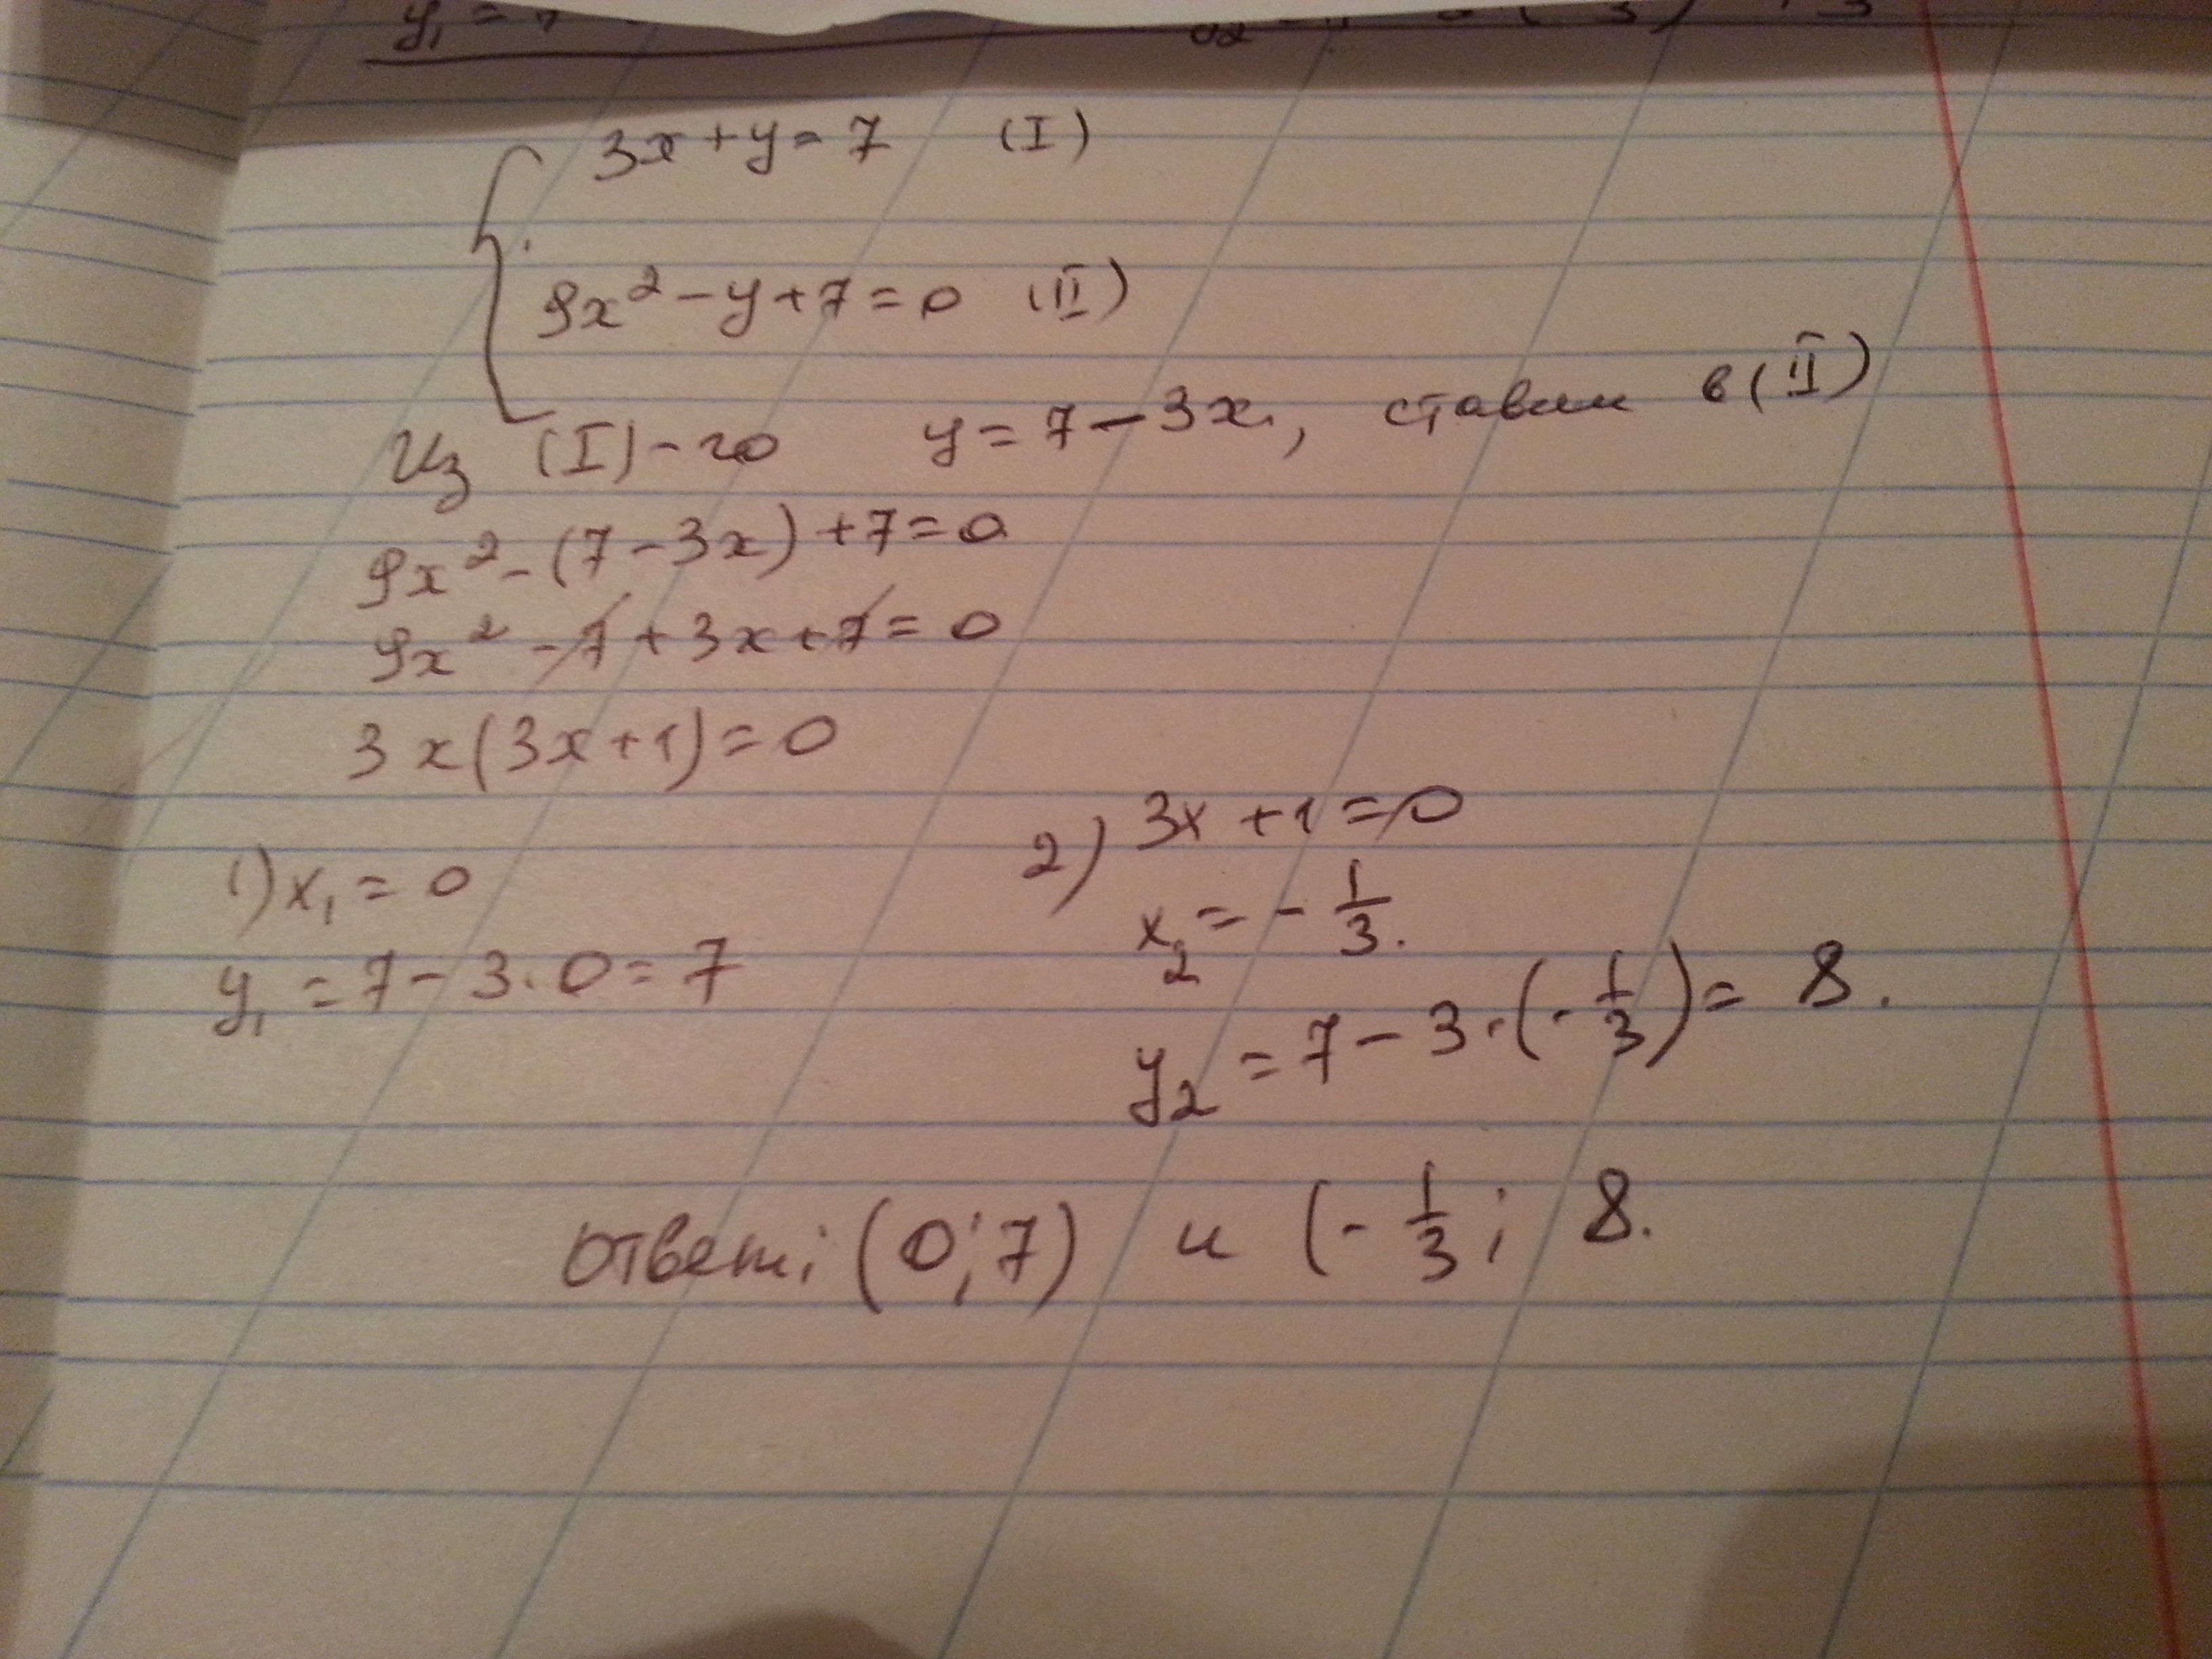 y₁ =
3x + y = 7 (I)
9x² - y + 7 = 0 (II)
Из (I) - го y = 7 - 3x, ставим в (II)
9x² - (7 - 3x) + 7 = 0
9x² - 7 + 3x + 7 = 0
3x(3x + 1) = 0
1) x₁ = 0
y₁ = 7 - 3 · 0 = 7
2) 3x + 1 = 0
x₂ = - 1/3.
y₂ = 7 - 3 · (- 1/3) = 8.
Ответ: (0; 7) и (- 1/3; 8.